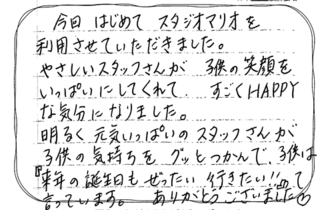 今日 はじめて スタジオマリオを
利用させていただきました。
やさしいスタッフさんが 子供の笑顔を
いっぱいにしてくれて、 すごくHAPPY
な気分になりました。
明るく 元気いっぱいの スタッフさんが
子供の気持ちを グッとつかんで、子供は
『来年の誕生日も ぜったい 行きたい!!』って
言っています。 ありがとうございました